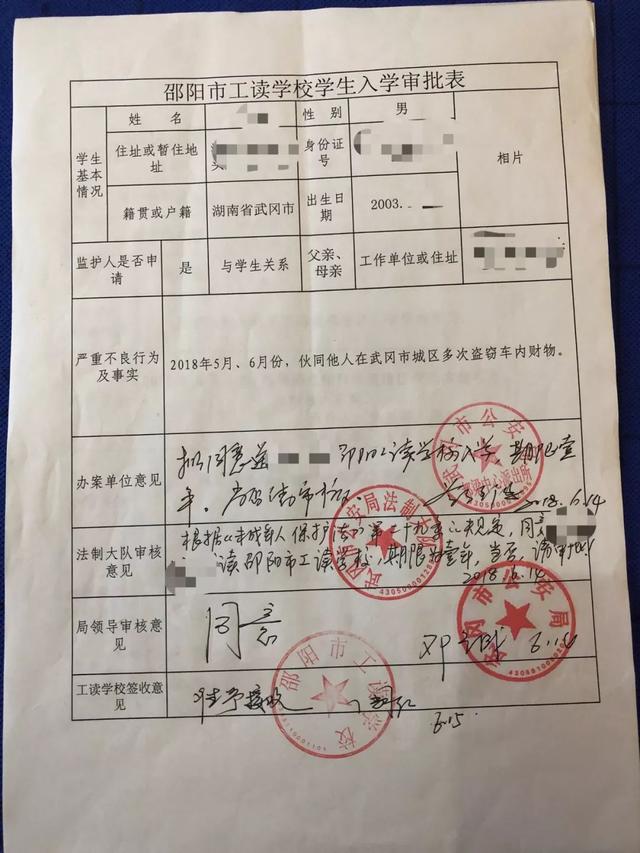 邵阳市工读学校学生入学审批表
学生基本情况
姓 名
性 别
男
相片
住址或暂住地址
身份证号
籍贯或户籍
湖南省武冈市
出生日期
2003.
监护人是否申请
是
与学生关系
父亲、母亲
工作单位或住址
严重不良行为及事实
2018年5月、6月份，伙同他人在武冈市城区多次盗窃车内财物。
办案单位意见
拟同意送 邵阳工读学校入学 期限壹
年，当否请审批。
2018.6.14
法制大队审核意见
根据《未成年人保护法》第二十九条之规定，同意
读邵阳市工读学校，期限为壹年，当否，请审批
2018.6.14
局领导审核意见
同意
6.14
工读学校签收意见
接收
6.15
武冈市公安局
邵阳市工读学校